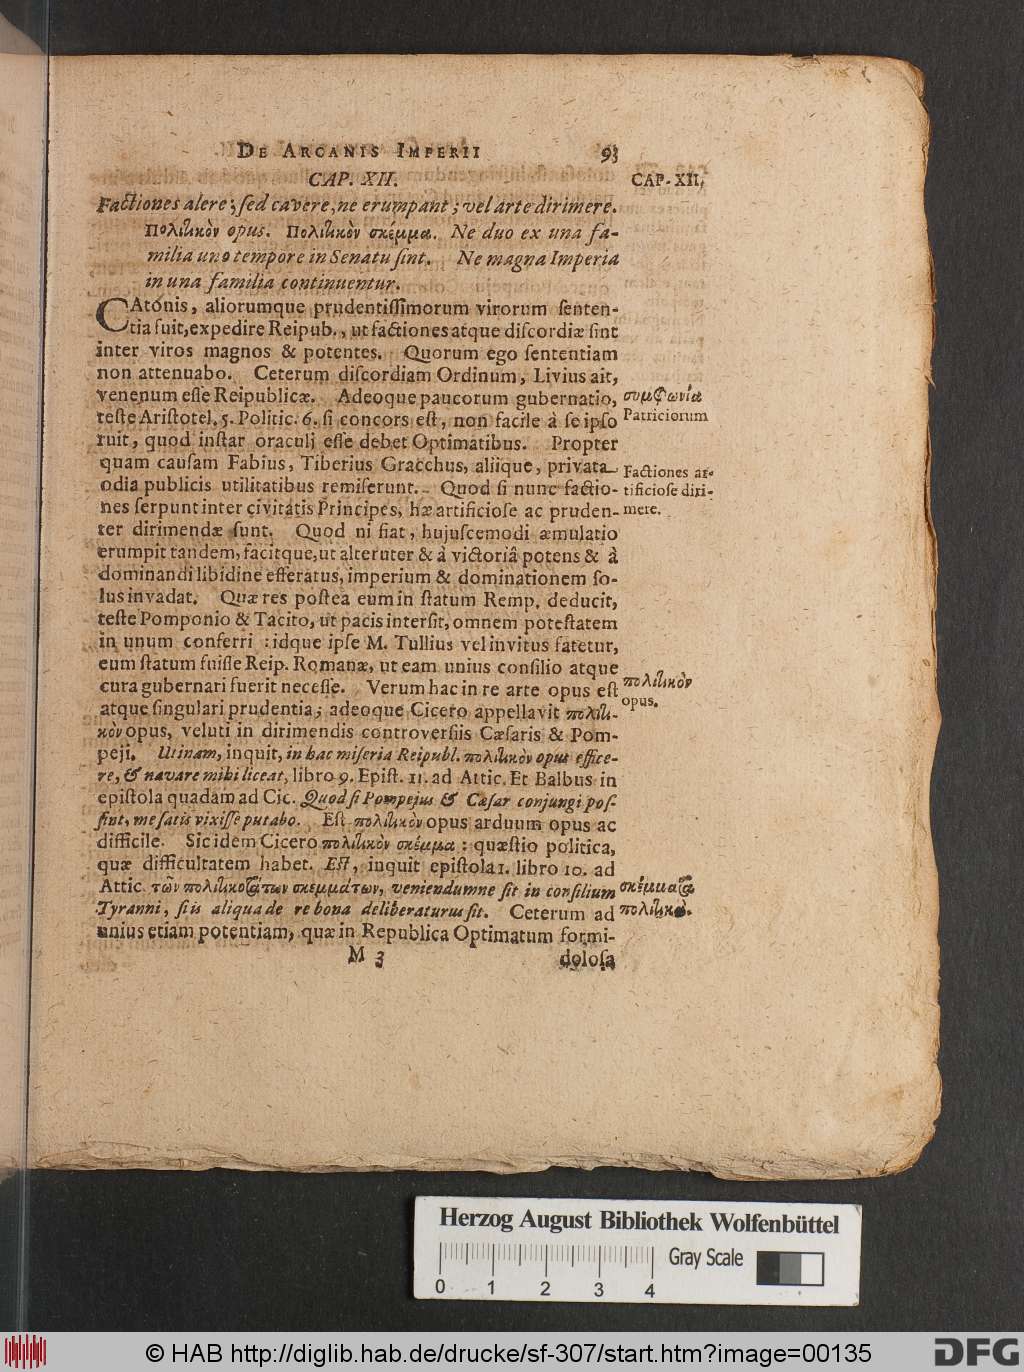 DE ARCANIS IMPERII 93
CAP. XII. CAP. XII.
Factiones alere; ſed cavere, ne erumpant; vel arte dirimere.
Πολιτικὸν opus. Πολιτικὸν σκέμμα. Ne duo ex una fa-
milia uno tempore in Senatu ſint. Ne magna Imperia
in una familia continuentur.
CAtonis, aliorumque prudentiſſimorum virorum ſenten-
tia fuit, expedire Reipub., ut factiones atque diſcordiæ ſint
inter viros magnos & potentes. Quorum ego ſententiam
non attenuabo. Ceterum diſcordiam Ordinum, Livius ait,
venenum eſſe Reipublicæ. Adeoque paucorum gubernatio,
συμφωνία
teſte Ariſtotel. 5. Politic. 6. ſi concors eſt, non facile à ſe ipſo
Patriciorum
ruit, quod inſtar oraculi eſſe debet Optimatibus. Propter
quam cauſam Fabius, Tiberius Gracchus, aliique, privata
Factiones ar-
odia publicis utilitatibus remiſerunt. Quod ſi nunc factio-
tificioſe diri-
nes ſerpunt inter civitatis Principes, hæ artificioſe ac pruden-
mere.
ter dirimendæ ſunt. Quod ni fiat, hujuſcemodi æmulatio
erumpit tandem, facitque, ut alteruter & à victoriâ potens & à
dominandi libidine efferatus, imperium & dominationem ſo-
lus invadat. Quæ res poſtea eum in ſtatum Remp. deducit,
teſte Pomponio & Tacito, ut pacis interſit, omnem poteſtatem
in unum conferri : idque ipſe M. Tullius vel invitus fatetur,
eum ſtatum fuiſſe Reip. Romanæ, ut eam unius conſilio atque
cura gubernari fuerit neceſſe. Verum hac in re arte opus eſt
πολιτικὸν
atque ſingulari prudentia; adeoque Cicero appellavit πολιτι-
opus.
κὸν opus, veluti in dirimendis controverſiis Cæſaris & Pom-
peji. Utinam, inquit, in hac miſeria Reipubl. πολιτικὸν opus effice-
re, & navare mihi liceat, libro 9. Epiſt. 11. ad Attic. Et Balbus in
epiſtola quadam ad Cic. Quod ſi Pompejus & Cæſar conjungi poſ-
ſint, me ſatis vixiſſe putabo. Eſt πολιτικὸν opus arduum opus ac
difficile. Sic idem Cicero πολιτικὸν σκέμμα : quæſtio politica,
quæ difficultatem habet. Eſt, inquit epiſtola 1. libro 10. ad
Attic. τῶν πολιτικοτάτων σκεμμάτων, veniendumne ſit in conſilium
σκέμματα
Tyranni, ſi is aliqua de re bona deliberaturus ſit. Ceterum ad
πολιτικά.
unius etiam potentiam, quæ in Republica Optimatum formi-
M 3 doloſa
Herzog August Bibliothek Wolfenbüttel
Gray Scale
0 1 2 3 4
© HAB http://diglib.hab.de/drucke/sf-307/start.htm?image=00135
DFG